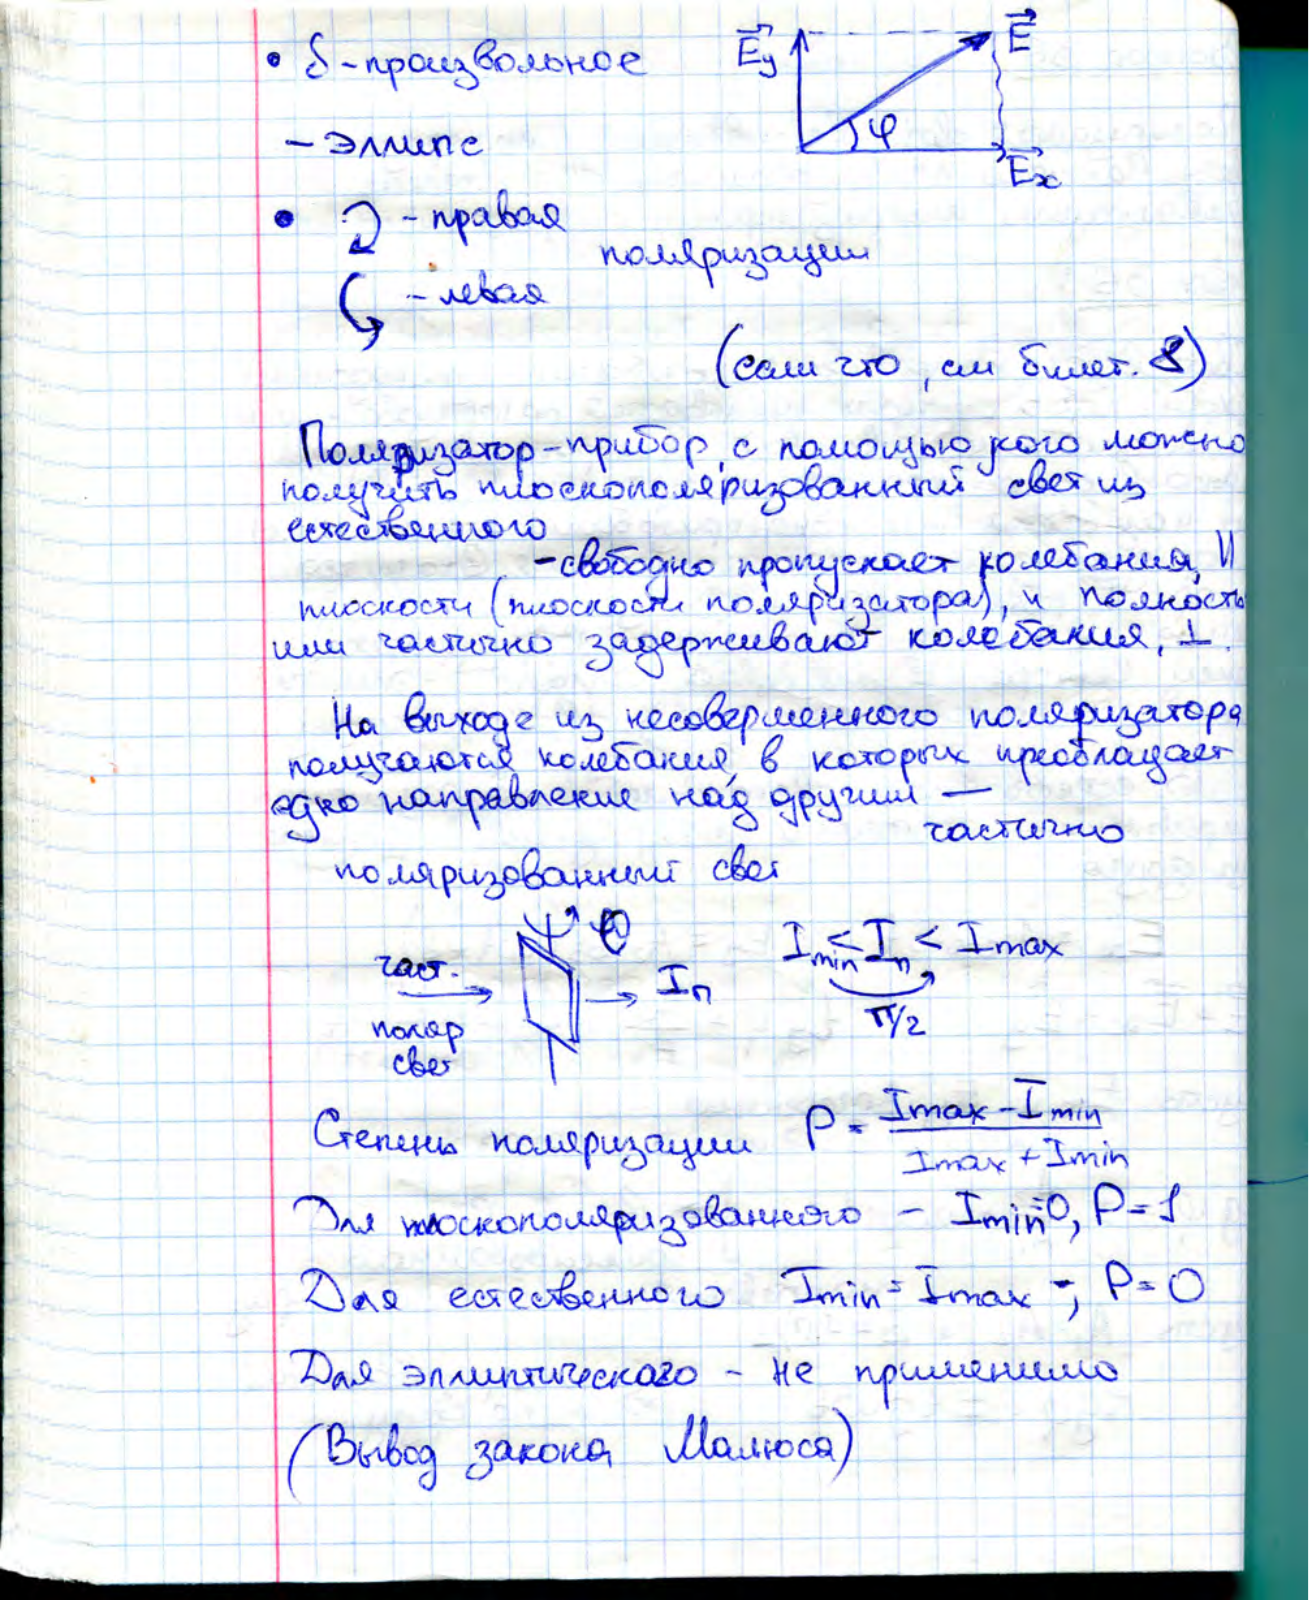 • δ - произвольное
E⃗y
E⃗
φ
E⃗x
— эллипс
• - правая
поляризации
- левая
(если что, см билет. 8)
Поляризатор - прибор, с помощью кого можно
получить плоскополяризованный свет из
естественного
- свободно пропускает колебания, ||
плоскости (плоскости поляризатора), и полность
или частично задерживают колебания, ⊥.
На выходе из несовершенного поляризатора
получаются колебания, в которых преобладает
одно направление над другим —
частично
поляризованный свет
φ
част.
поляр
свет
Iп
Imin < Iп < Imax
π/2
Степень поляризации P = (Imax - Imin)/(Imax + Imin)
Для плоскополяризованного - Imin=0, P=1
Для естественного Imin = Imax -, P=0
Для эллиптического - не применимо
(Вывод закона Малюса)